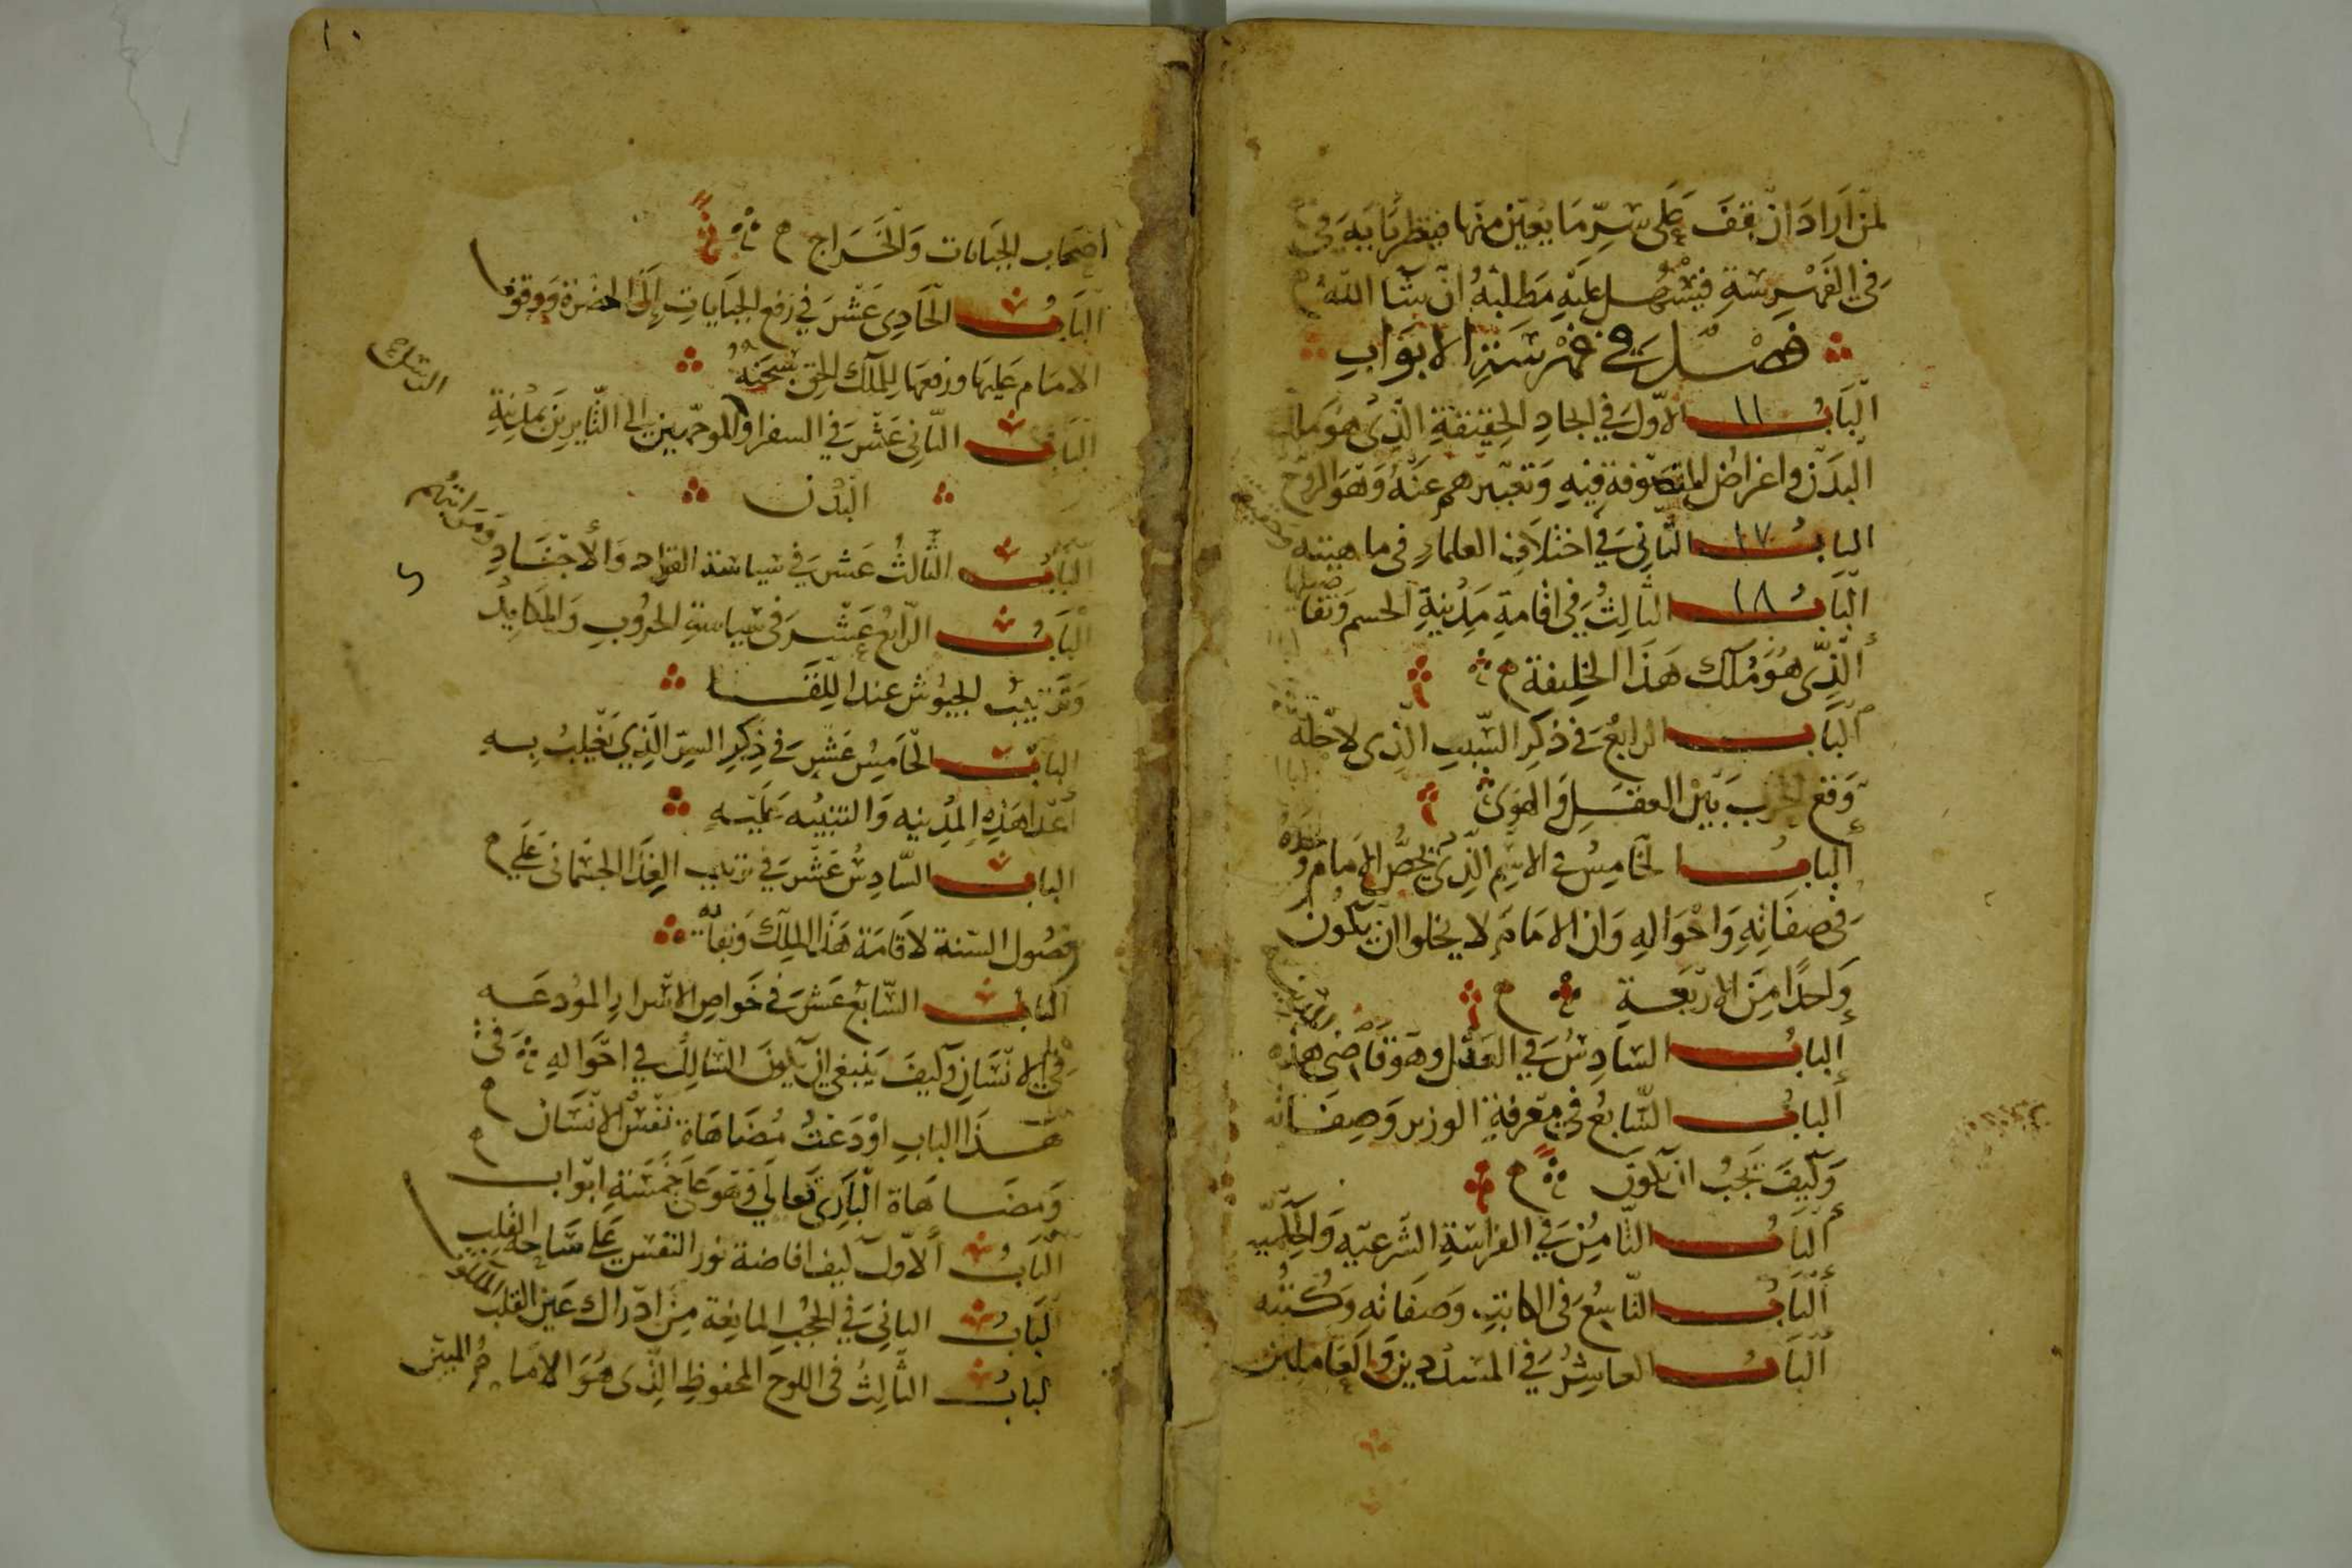 لمن اراد ان يقف على سر ما يعين منها فينظر بابه في
في الفهرسة فيسهل عليه مطلبه ان شا الله
فصل في فهرسة الابواب
الباب ١١ الاول في ايجاد الخليفة الذي هو ملك
البدن واغراض المتصوفة فيه وتعبيرهم عنه وهو الروح
الباب ١٧ الثاني في اختلاف العلماء في ماهيته
الباب ١٨ الثالث في اقامة مدينة الجسم وتفا صيلها
الذي هو ملك هذا الخليفة
الباب الرابع في ذكر السبب الذي لاجله
وقع الحرب بين العقل والهوى
الباب الخامس في الاسم الذي يخص الامام وحده
في صفاته واحواله وان الامام لا يخلوا ان يكون
واحدا من الاربعة
الباب السادس في العدل وهو قاضي هذه
الباب السابع في معرفة الوزير وصفاته
وكيف يجب ان يكون
الباب الثامن في الفراسة الشرعيه والحكميه
الباب التاسع في الكاتب وصفاته وكتبه
الباب العاشر في المسددين والعاملين
١٠
اصحاب الجبايات والخراج
الباب الحادي عشر في رفع الجبايات الى الحضرة ووقوف
الامام عليها ورفعها للملك الحق سبحنه
الباب الثاني عشر في السفرا والموجهين الى الثايرين بمدينة
البدن
الباب الثالث عشر في سياسة القواد والاجناد ومراتبهم
الباب الرابع عشر في سياسة الحروب والمكايد
وترتيب الجيوش عند اللقا
الباب الخامس عشر في ذكر السر الذي يغلب به
اعدا هذه المدينه والتنبيه عليه
الباب السادس عشر في ترتيب الغذا الجسماني على
فصول السنة لاقامة هذا الملك وبقائه
الباب السابع عشر في خواص الاسرار المودعه
في الانسان وكيف ينبغي ان يكون السالك في احواله وفي
هذا الباب اودعت مضاهاة نفس الانسان
ومضاهاة الباري تعالى وهو على خمسة ابواب
الباب الاول كيف افاضة نور النفس على ساحة القلب
الباب الثاني في الحجب المانعة من ادراك عين القلب
لباب الثالث في اللوح المحفوظ الذي هو الامام المبين